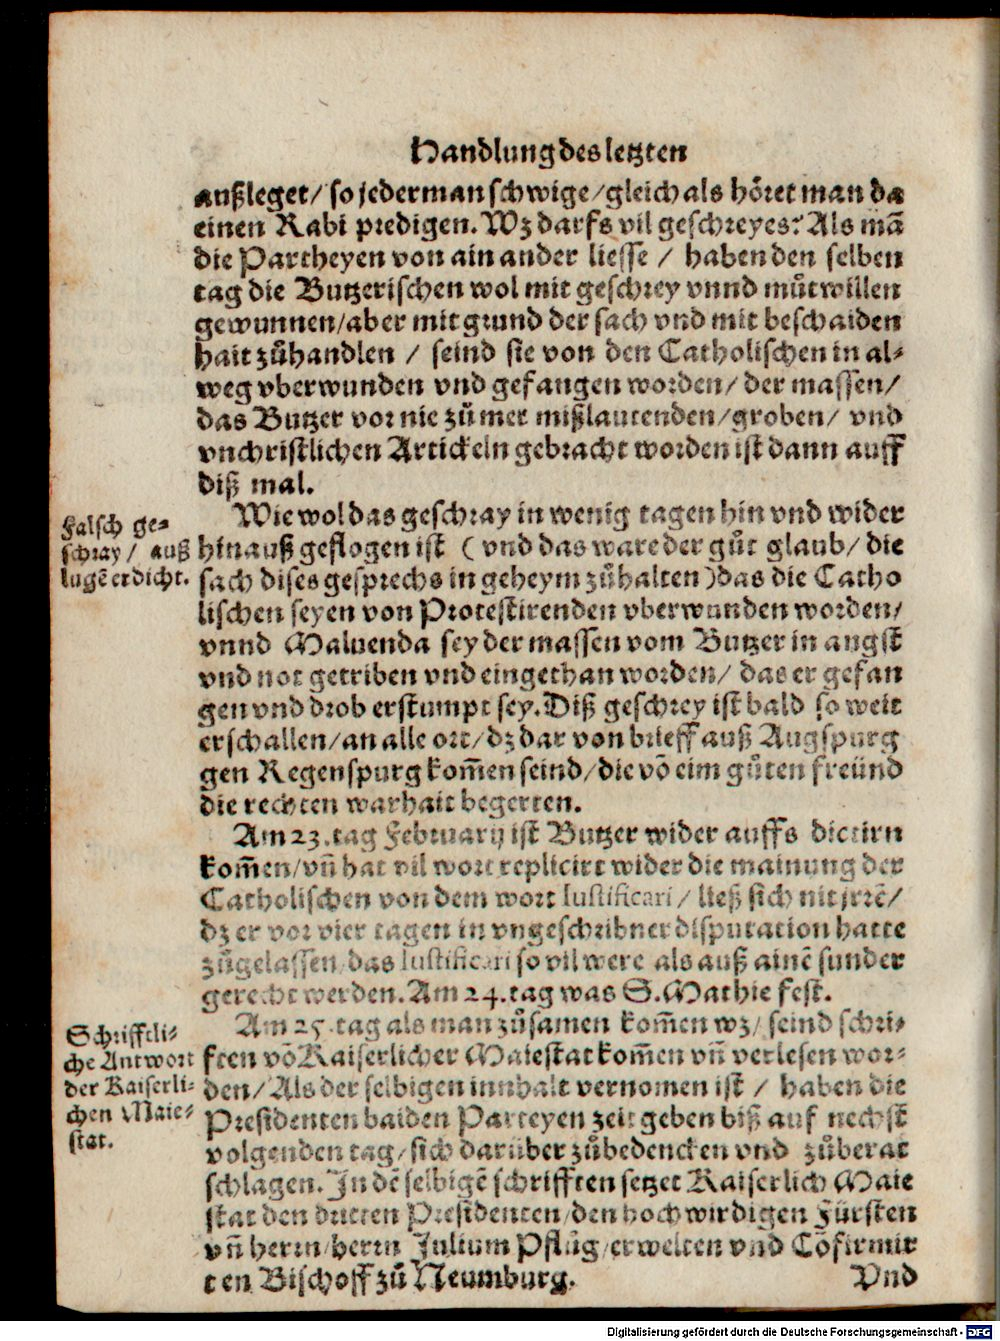 Handlung des letzten
außleget/ so jederman schwige/ gleich als höret man da
einen Rabi predigen. Wz darfs vil geschreyes? Als mã
die Partheyen von ain ander liesse / haben den selben
tag die Butzerischen wol mit geschrey vnnd mûtwillen
gewunnen/ aber mit grund der sach vnd mit beschaiden
hait zůhandlen / seind sie von den Catholischen in al-
weg vberwunden vnd gefangen worden/ der massen/
das Butzer vor nie zů mer mißlautenden/ groben/ vnd
vnchristlichen Artickeln gebracht worden ist dann auff
diß mal.
Falsch ge-
schray / auß
lugẽ erdicht.
Wiewol das geschray in wenig tagen hin vnd wider
hinauß geflogen ist ( vnd das ware der gůt glaub/ die
sach dises gesprechs in geheym zůhalten ) das die Catho
lischen seyen von Protestirenden vberwunden worden/
vnnd Maluenda sey der massen vom Butzer in angst
vnd not getriben vnd eingethan worden/ das er gefan
gen vnd drob erstumpt sey. Diß geschrey ist bald so weit
erschallen/ an alle ort/ dz dar von brieff auß Augspurg
gen Regenspurg kom̃en seind/ die võ eim gůten freünd
die rechten warhait begerten.
Am 23. tag Februarij ist Butzer wider auffs dictirn
kom̃en/ vñ hat vil wort replicirt wider die mainung der
Catholischen von dem wort Iustificari / ließ sich nit jrrẽ/
dz er vor vier tagen in vngeschribner disputation hatte
zůgelassen/ das Iustificari so vil were als auß ainẽ sunder
gerecht werden. Am 24. tag was S. Mathie fest.
Schrifftli-
che Antwort
der Kaiserli-
chen Maie-
stat.
Am 25. tag als man zůsamen kom̃en wz/ seind schri-
fften võ Kaiserlicher Maiestat kom̃en vñ verlesen wor-
den/ Als der selbigen innhalt vernomen ist / haben die
Presidenten baiden Parteyen zeit geben biß auf nechst
volgenden tag/ sich darüber zůbedencken vnd zůberat
schlagen. In dẽ selbigẽ schrifften setzet Kaiserlich Maie
stat den dritten Presidenten/ den hochwirdigen Fürsten
vñ herrn/ herrn Julium Pflůg/ erwelten vnd Cõfirmir
ten Bischoff zů Neumburg.
Vnd
Digitalisierung gefördert durch die Deutsche Forschungsgemeinschaft - DFG